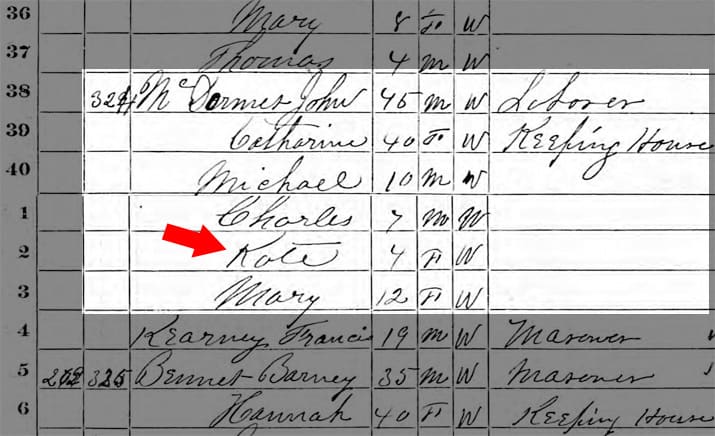 36 Mary 8 F W
37 Thomas 4 M W
38 324 McDermet John 45 M W Laborer
39 Catharine 40 F W Keeping House
40 Michael 10 M W
1 Charles 7 M W
2 Kate 4 F W
3 Mary 12 F W
4 Kearney Francis 19 M W
5 325 Bennet Barney 35 M W
6 Hannah 40 F W Keeping House